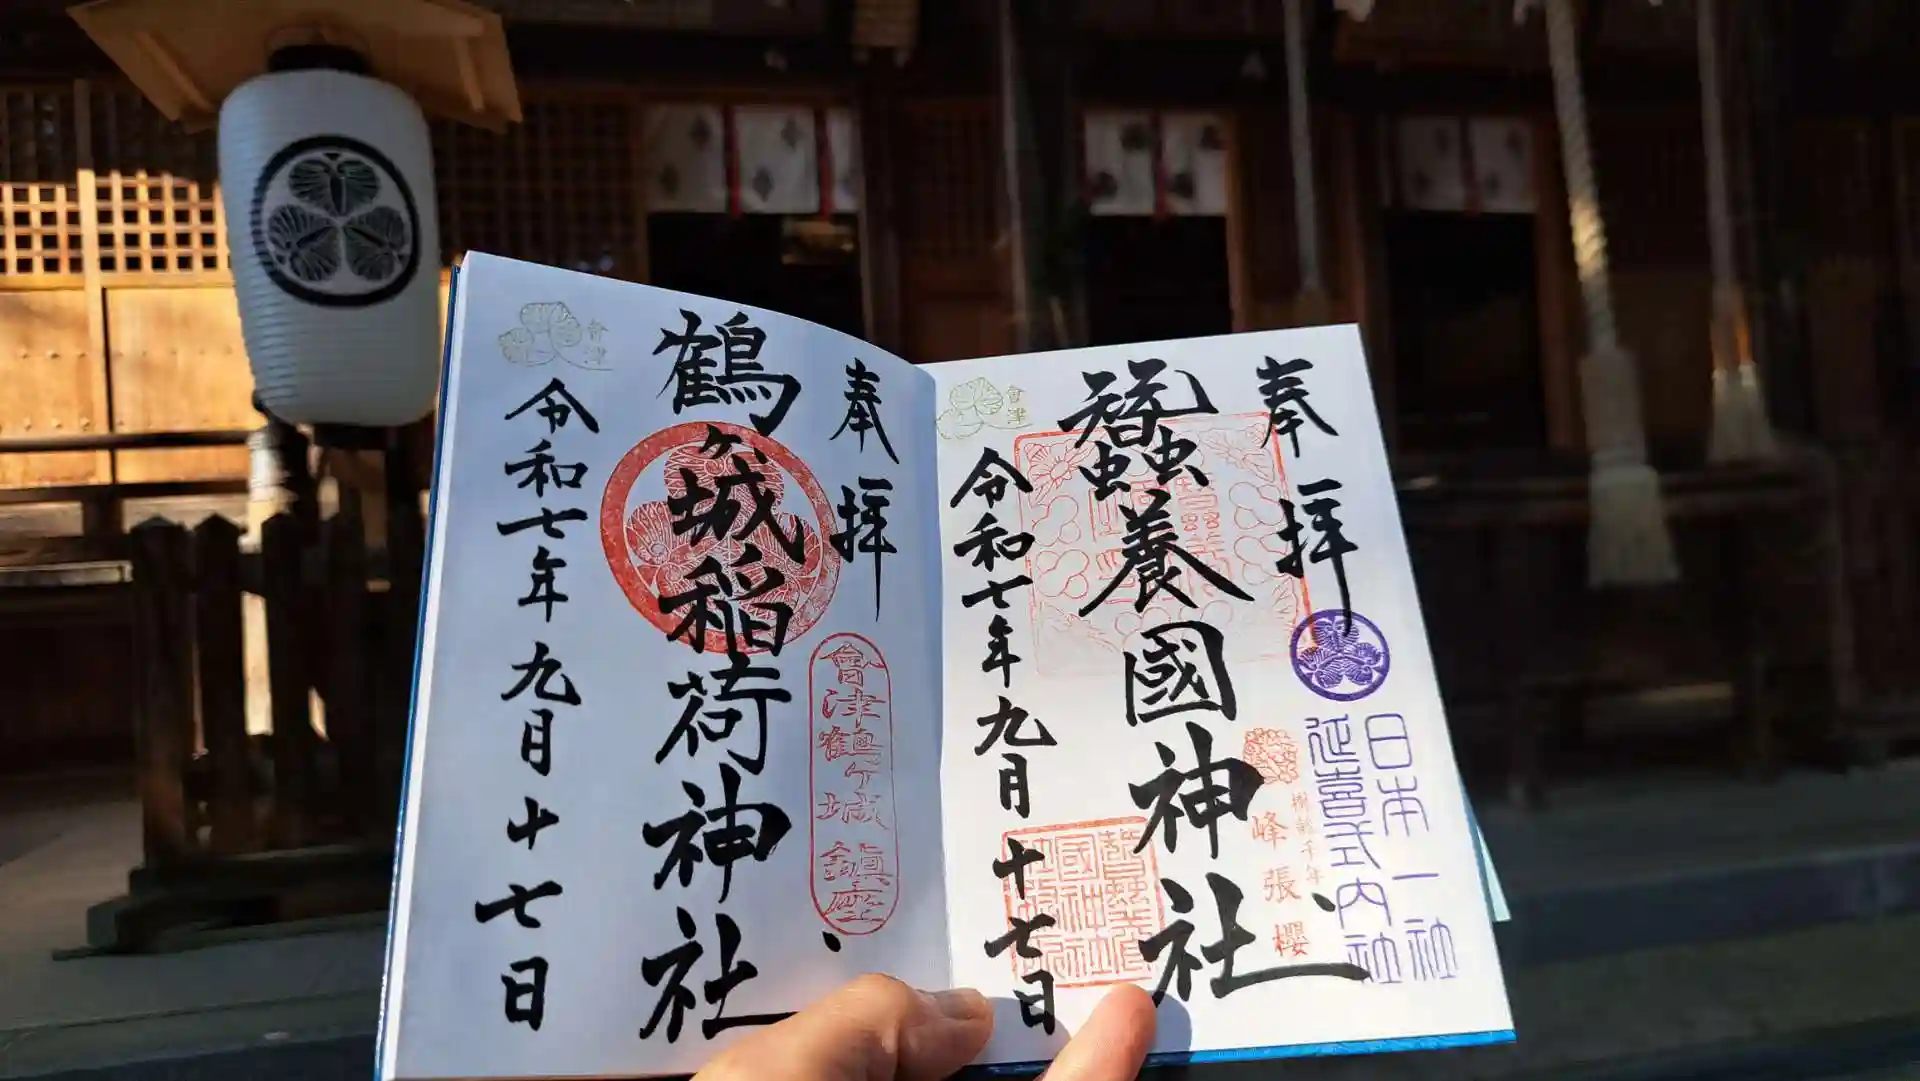 奉拝
日本一社
延喜式内社
樹齢千年
峰張櫻
蠶養國神社
會津
令和七年九月十七日
奉拝
會津鶴ヶ城鎮座
鶴ヶ城稲荷神社
會津
令和七年九月十七日